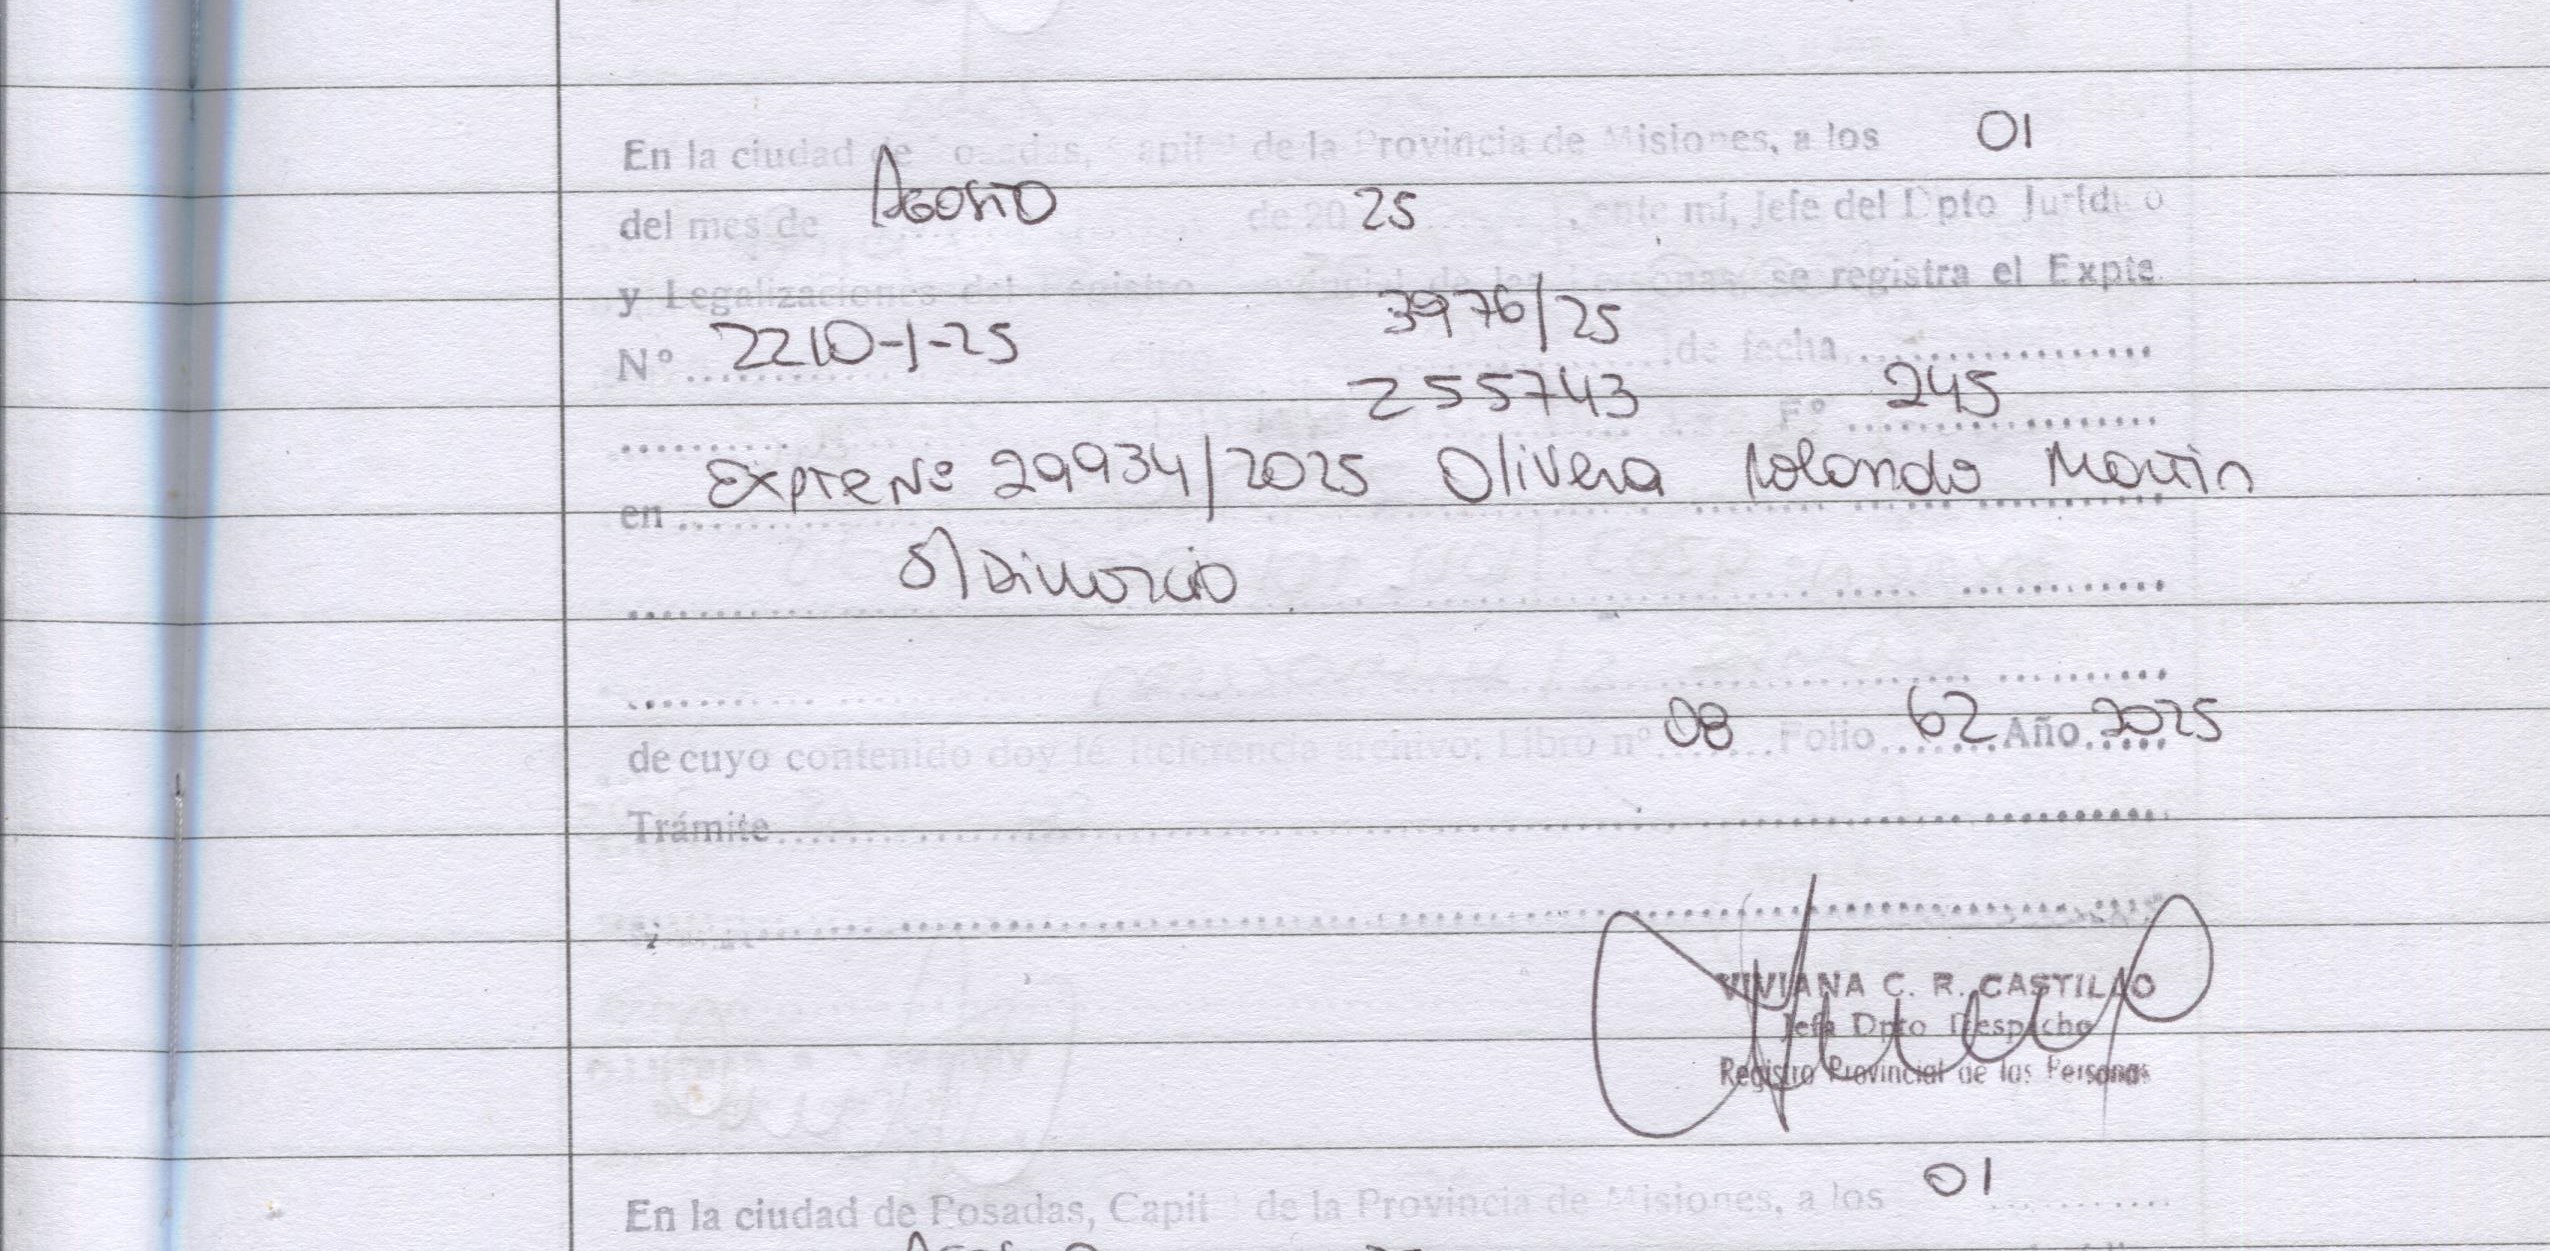 En la ciudad de Posadas, Capital de la Provincia de Misiones, a los 01
del mes de Agosto de 20 25, ante mí, Jefe del Dpto Jurídico
y Legalizaciones del Registro Provincial de las Personas, se registra el Expte.
Nº 2210-1-25 3976/25 de fecha
255743 Fº 245
en Expte Nº 29934/2025 Olivera Rolando Martin
S/Divorcio
de cuyo contenido doy fé. Referencia archivo: Libro nº 08 Folio 62 Año 2025
Trámite
VIVIANA C. R. CASTILLO
Jefa Dpto Despacho
Registro Provincial de las Personas
En la ciudad de Posadas, Capital de la Provincia de Misiones, a los 01